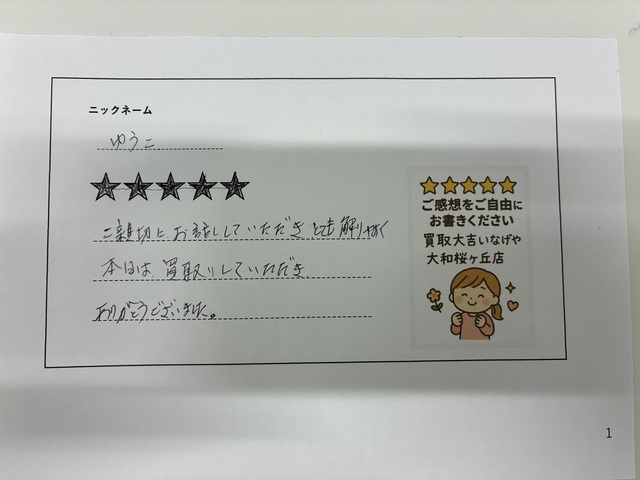 ニックネーム
ゆうこ
ご親切に お話していただき とても 解りやすく
本日は、買取りしていただき
ありがとうございました。
ご感想をご自由に
お書きください
買取大吉いなげや
大和桜ヶ丘店
1